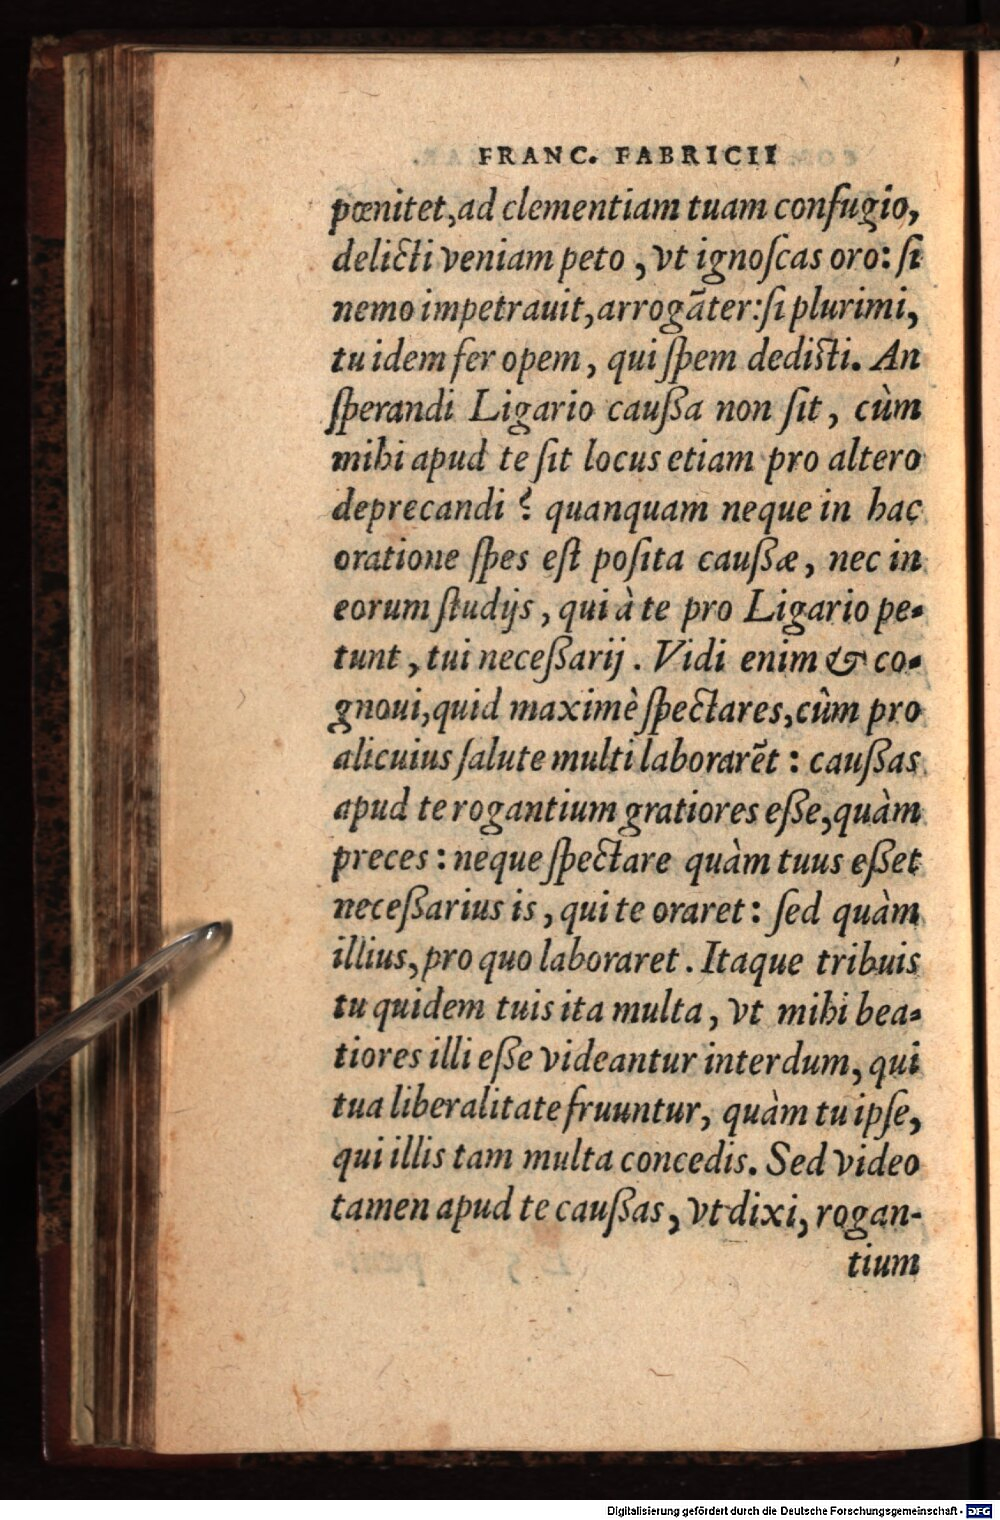 FRANC. FABRICII
pœnitet, ad clementiam tuam confugio,
delicti veniam peto, vt ignoſcas oro: ſi
nemo impetrauit, arrogãter: ſi plurimi,
tu idem fer opem, qui ſpem dediſti. An
ſperandi Ligario caußa non ſit, cùm
mihi apud te ſit locus etiam pro altero
deprecandi? quanquam neque in hac
oratione ſpes eſt poſita caußæ, nec in
eorum ſtudijs, qui à te pro Ligario pe-
tunt, tui neceßarij. Vidi enim & co-
gnoui, quid maximè ſpectares, cûm pro
alicuius ſalute multi laborarẽt: caußas
apud te rogantium gratiores eße, quàm
preces: neque ſpectare quàm tuus eßet
neceßarius is, qui te oraret: ſed quàm
illius, pro quo laboraret. Itaque tribuis
tu quidem tuis ita multa, vt mihi bea-
tiores illi eße videantur interdum, qui
tua liberalitate fruuntur, quàm tu ipſe,
qui illis tam multa concedis. Sed video
tamen apud te caußas, vt dixi, rogan-
tium
Digitalisierung gefördert durch die Deutsche Forschungsgemeinschaft - DFG